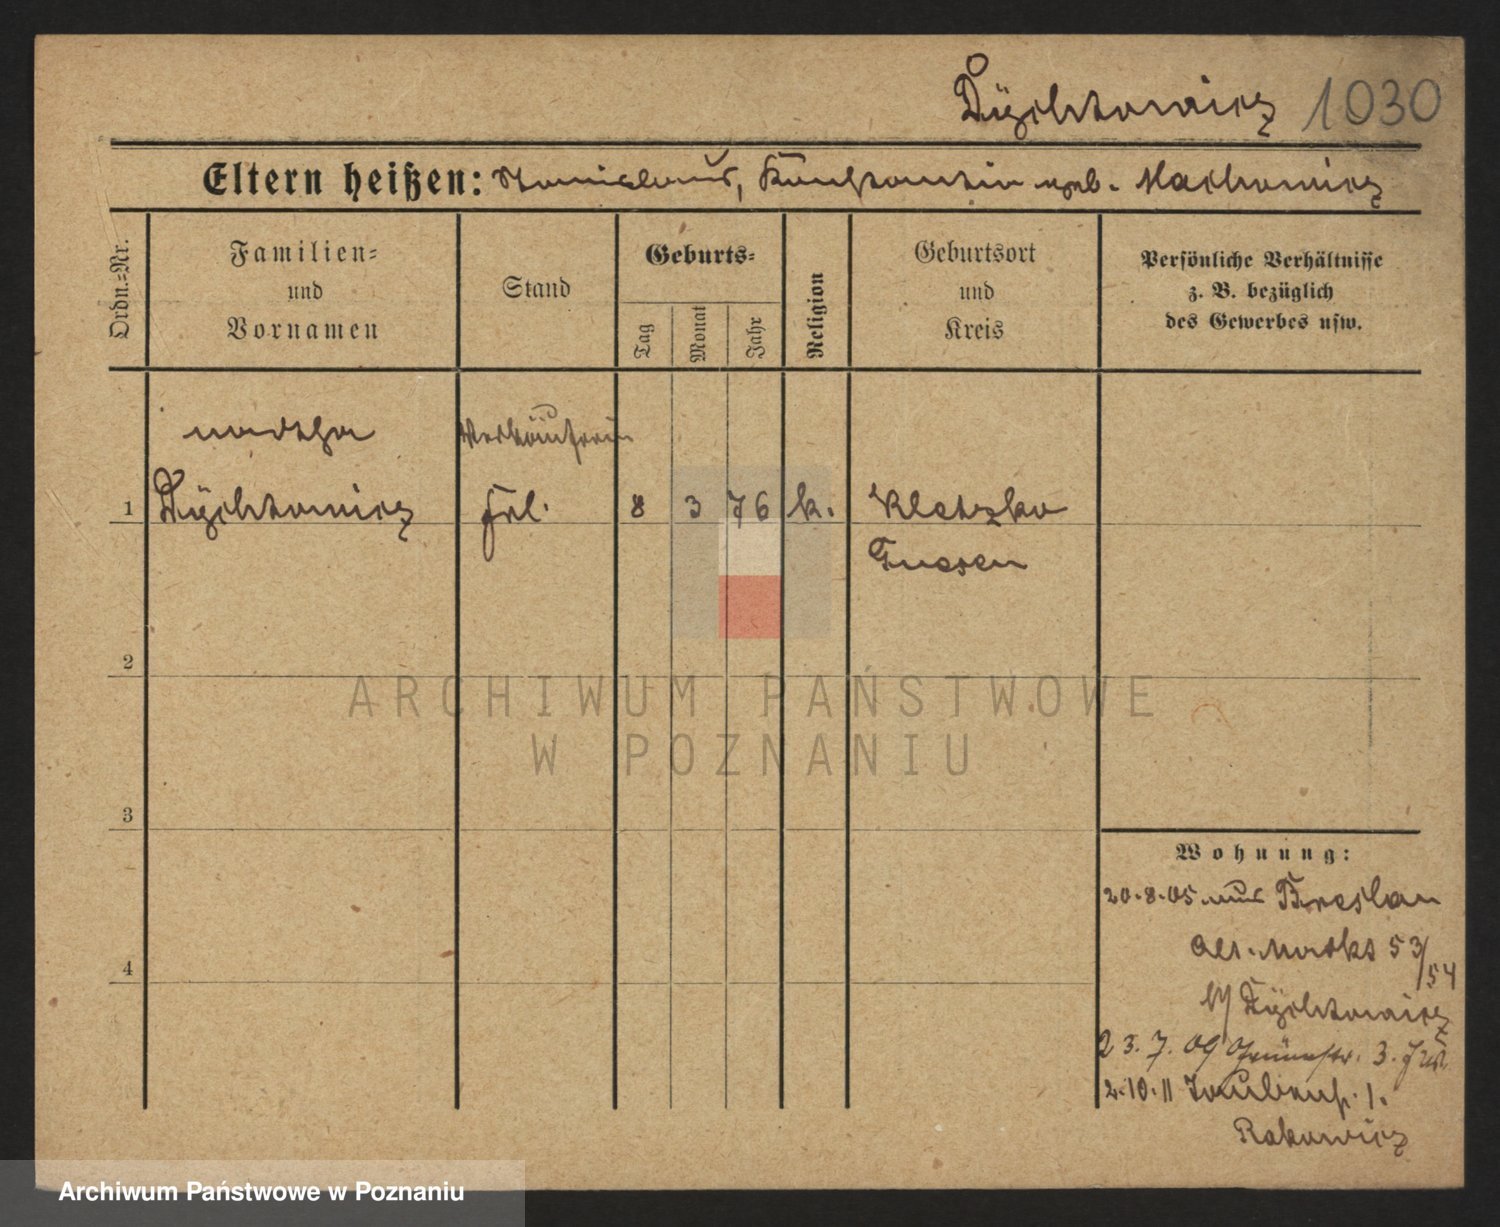 Dychtowicz 1030
Eltern heißen: Stanislaus, Konstantia geb. Machowicz
Ordn.-Nr.
Familien-
und
Vornamen
Stand
Geburts-
Tag
Monat
Jahr
Religion
Geburtsort
und
Kreis
Persönliche Verhältnisse
z. B. bezüglich
des Gewerbes usw.
Martha
Verkäuferin
1 Dychtowicz Frl. 8 3 76 k. Kletzko
Gnesen
2
3
4
Wohnung:
20.8.05 aus Breslau
Alt. Markt 53/54
b/ Dychtowicz
23.7.09 3.
2.10.11 Taubenstr. 1.
Rakowicz
ARCHIWUM PAŃSTWOWE
W POZNANIU
Archiwum Państwowe w Poznaniu